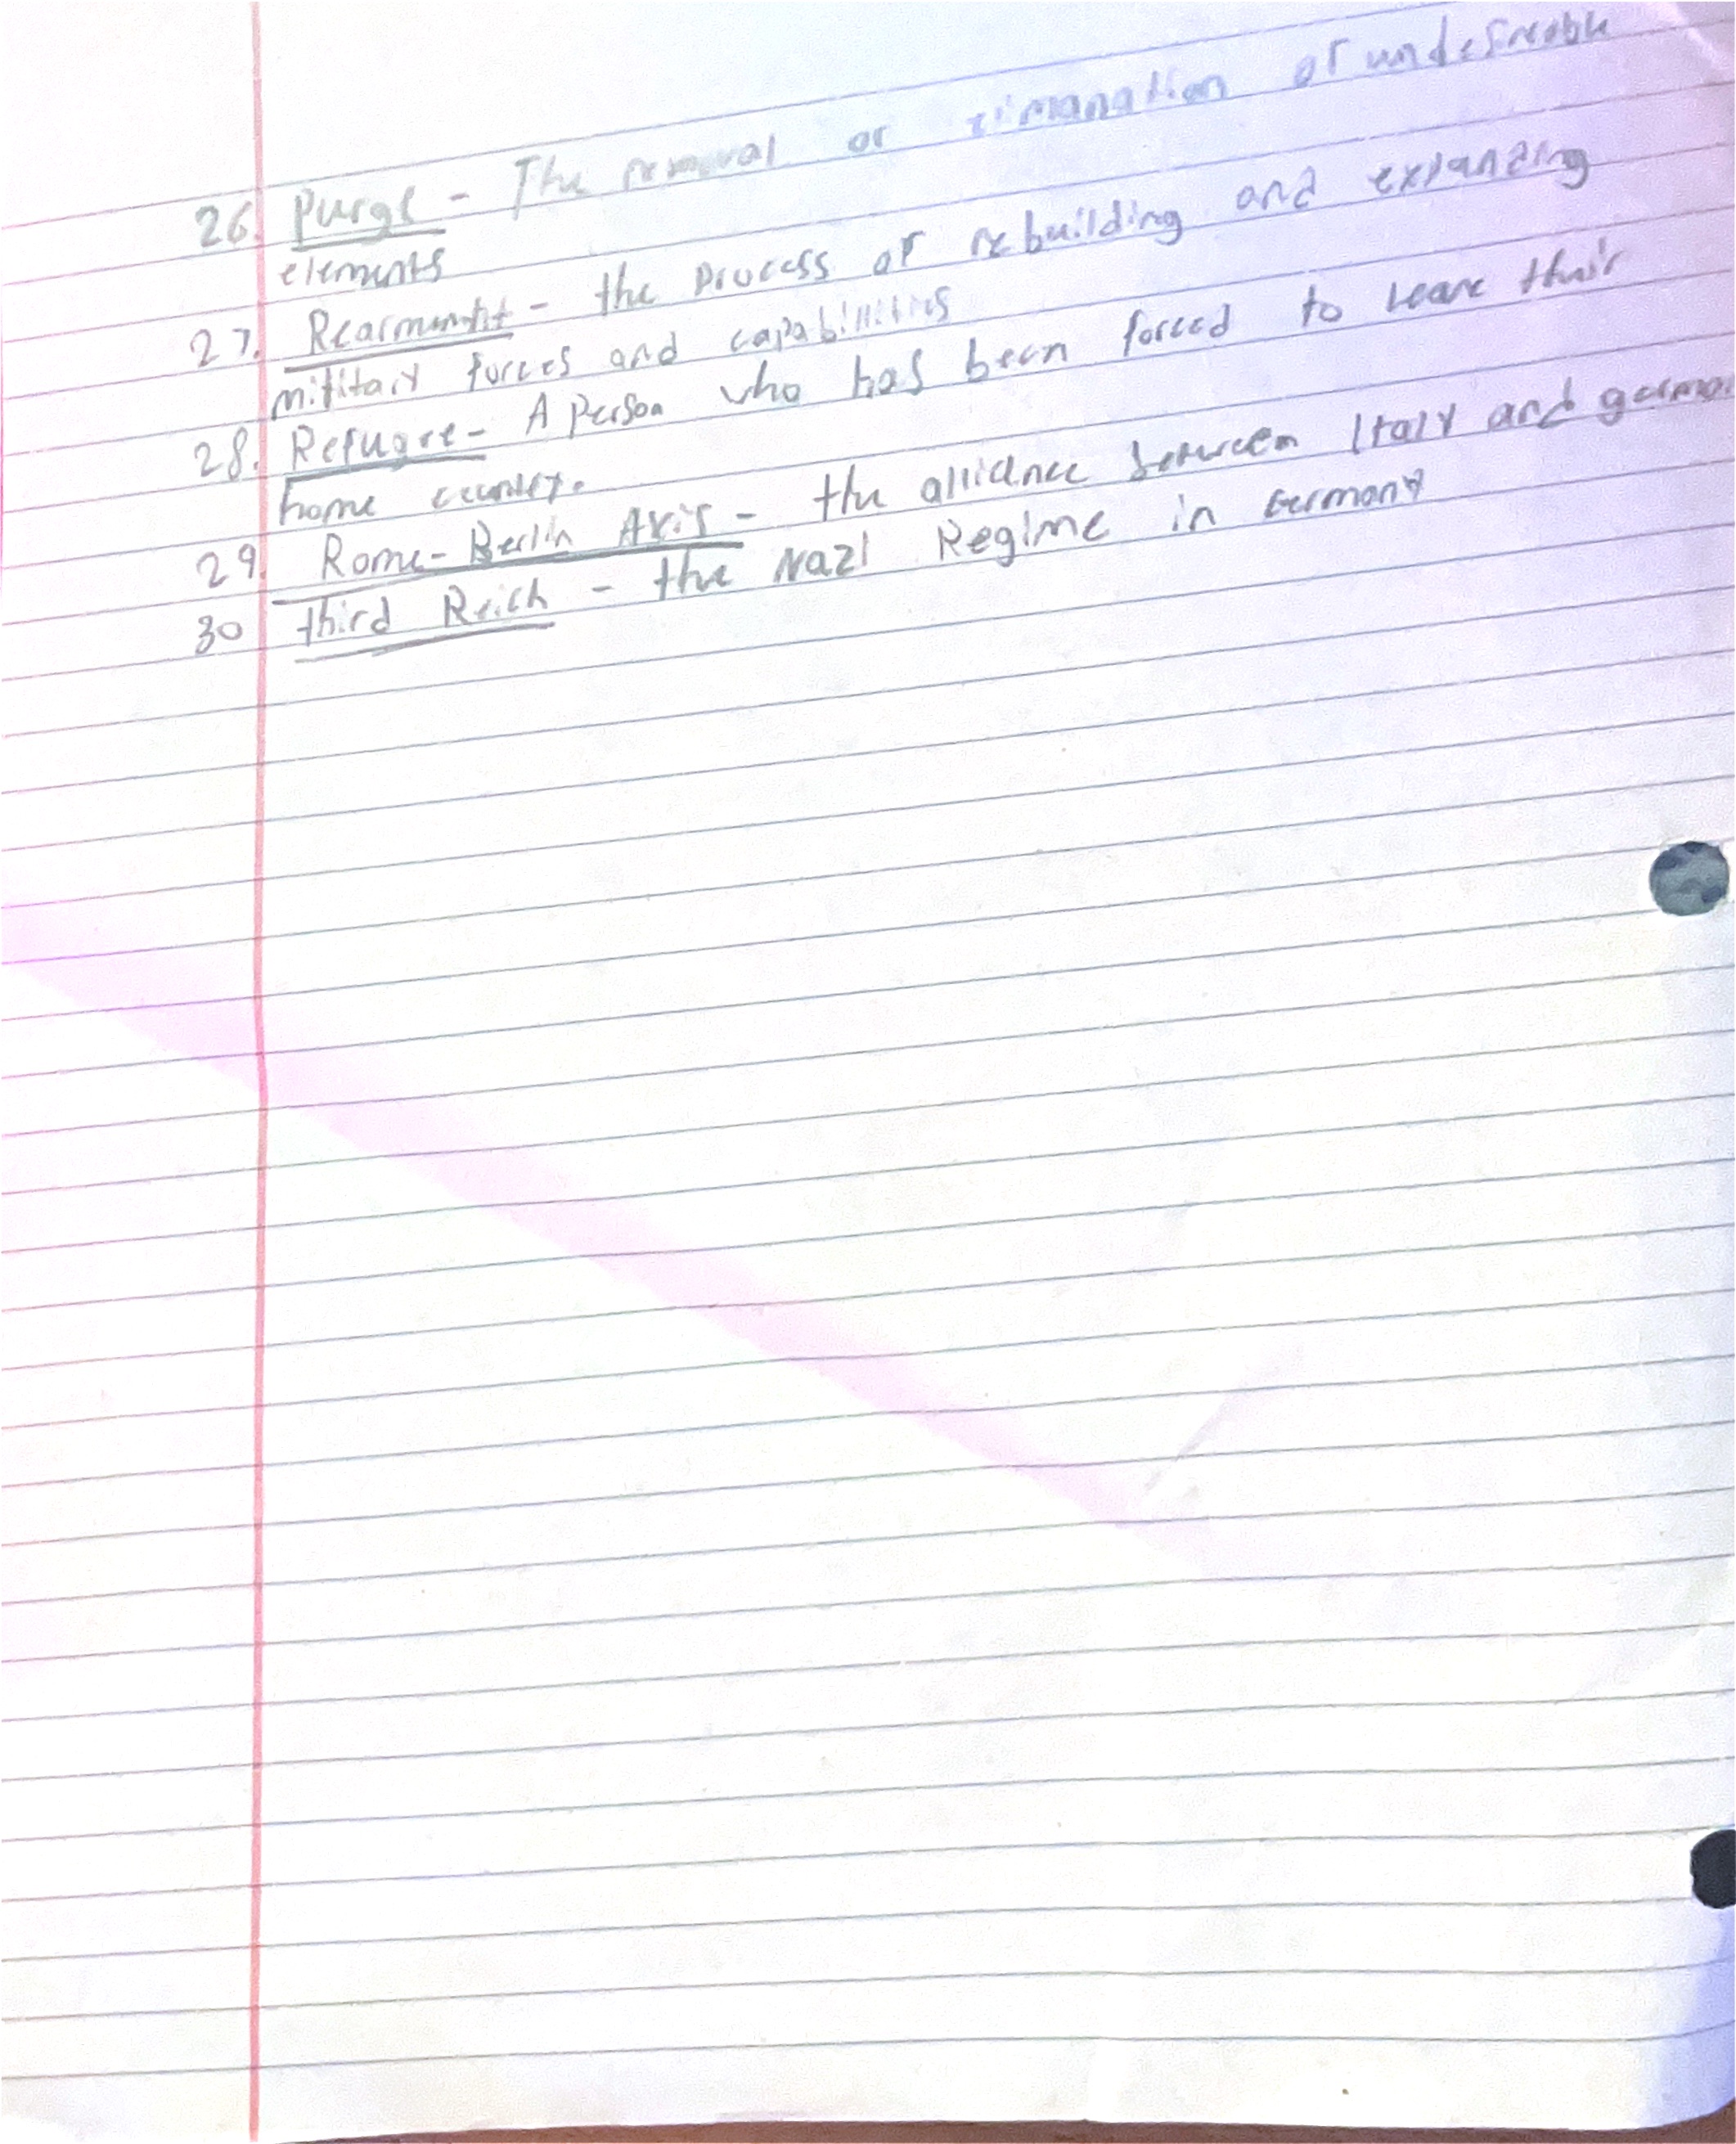 26. Purge - The removal or of undesirable
elements
27. Rearmamentt - the process of rebuilding and expanding
military forces and capabilities
28. Refugee - A person who has been forced to leave their
home country.
29. Rome-Berlin Axis - the alliance between Italy and german
30 third Reich - the Nazi Regime in Germany